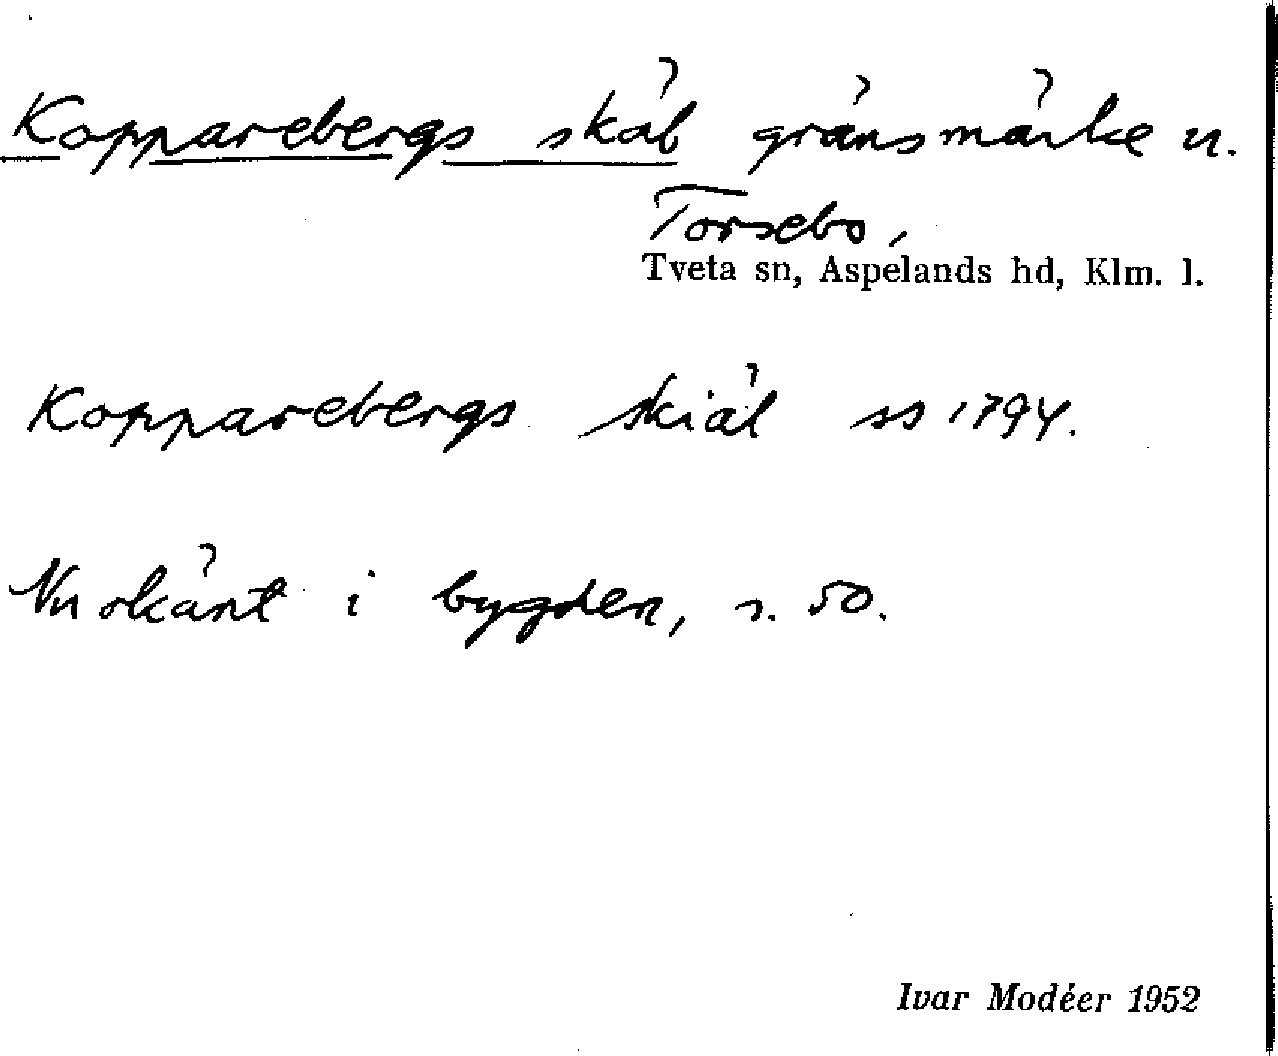 Kopparebergs skäl gränsmärke u.
Torsebo,
Tveta sn, Aspelands hd, Klm. l.
Kopparebergs skiäl ss 1794.
Nu okänt i bygden, s. 50.
Ivar Modéer 1952